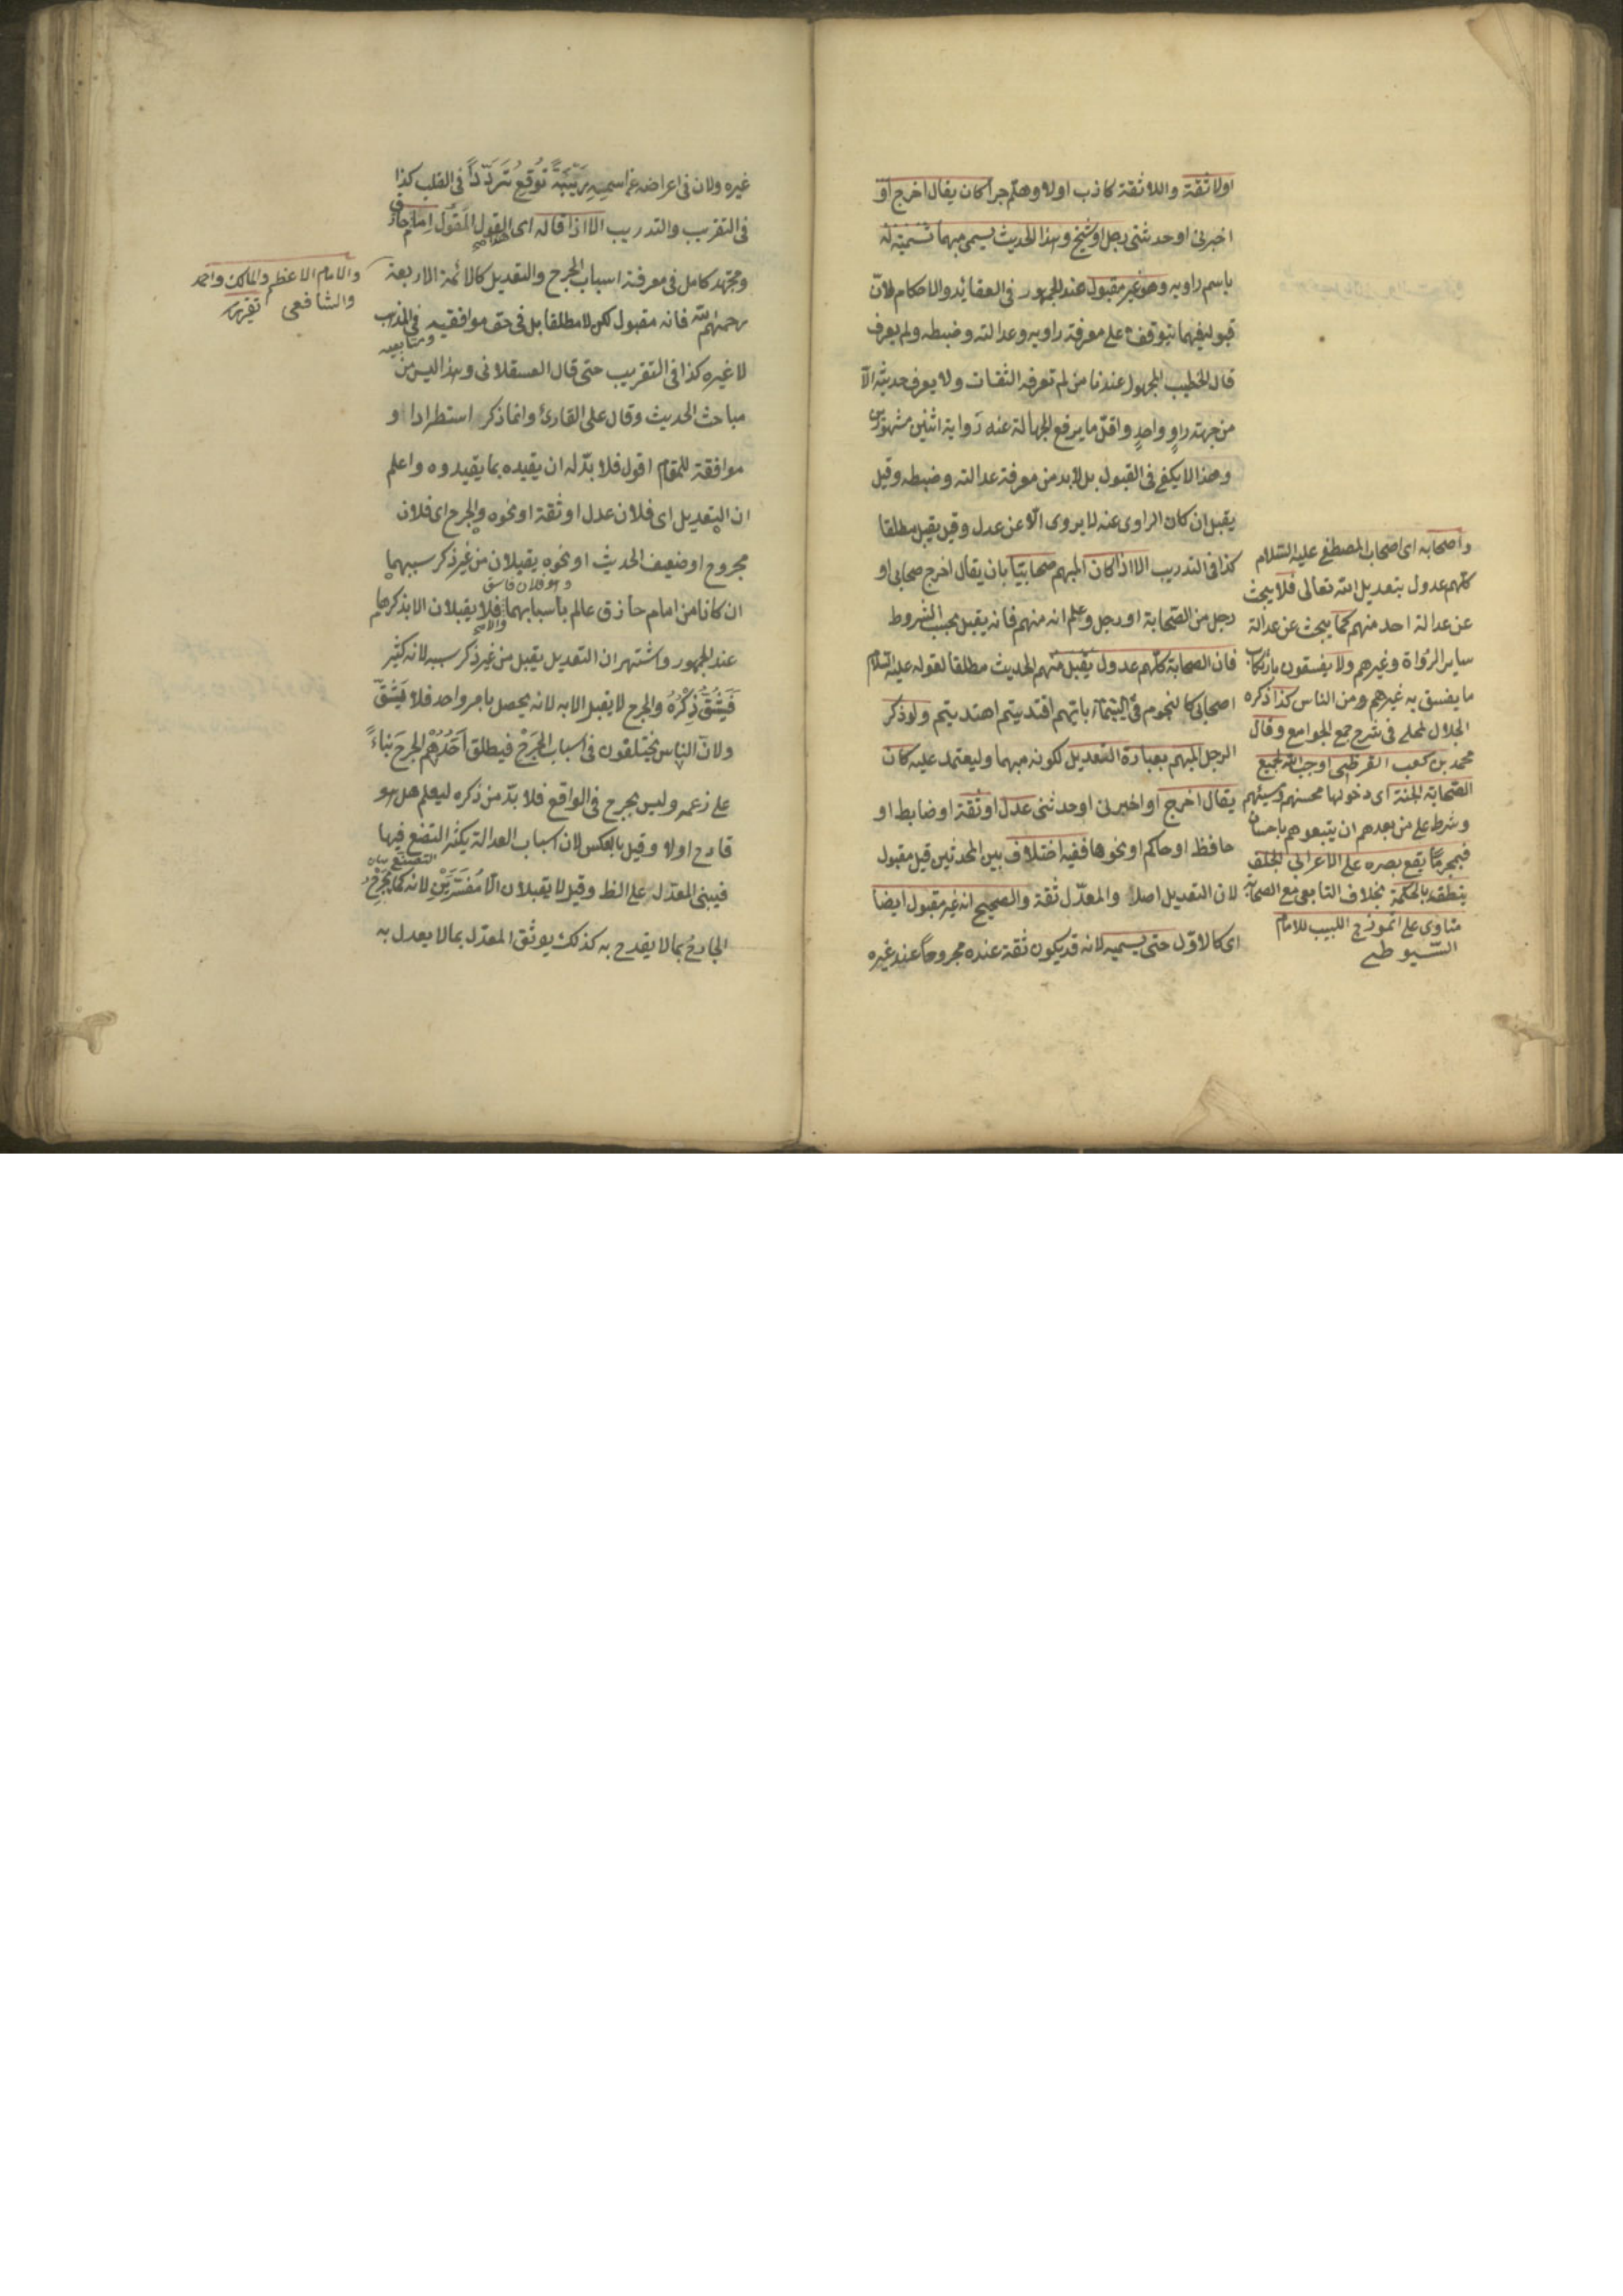 اولا ثقة واللا ثقة كاذب اولا وهلم جرا كان يقال اخرج او
اخبرنى اوحدثنى رجل او شيخ وهذا الحديث يسمى مبهما تسمية له
باسم راويه وهو غير مقبول عند الجمهور فى العقائد والاحكام لان
قبوله فيهما يتوقف على معرفة راويه وعدالته وضبطه ولم يعرف
قال الخطيب المجهول عندنا من لم تعرفه الثقات ولا يعرف حديثه الا
من جهة راو واحد واقل ما يرفع الجهالة عنه رواية اثنين مشهورين
وهذا لا يكفى فى القبول بل لابد من معرفة عدالته وضبطه وقيل
يقبل ان كان الراوى عنه لا يروى الا عن عدل وقيل يقبل مطلقا
كذا فى التدريب الا اذا كان المبهم صحابيا بان يقال اخرج صحابى او
رجل من الصحابة او رجل وعلم انه منهم فانه يقبل بحسب الشروط
فان الصحابة كلهم عدول يقبل منهم الحديث مطلقا لقوله عليه السلام
اصحابى كالنجوم فى السماء بايهم اقتديتم اهتديتم ولو ذكر
الرجل المبهم بعبارة التعديل لكونه مبهما وليعتمد عليه كان
يقال اخرج او اخبرنى اوحدثنى عدل او ثقة او ضابط او
حافظ اوحاكم او نحوها ففيه اختلاف بين المحدثين قيل مقبول
لان التعديل اصل والمعدل ثقة والصحيح انه غير مقبول ايضا
اى كالاول حتى يسميه لانه قد يكون ثقة عنده مجروحا عند غيره
واصحابه اى اصحاب المصطفى عليه السلام
كلهم عدول بتعديل الله تعالى فلا يبحث
عن عدالة احد منهم كما يبحث عن عدالة
ساير الرواة وغيرهم ولا يفسقون بارتكاب
ما يفسق به غيرهم ومن الناس كذا ذكره
الجلال المحلى فى شرح جمع الجوامع وقال
محمد بن كعب القرظى اوجب الله لجميع
الصحابة الجنة اى دخولها محسنهم ومسيئهم
وشرط على من بعدهم ان يتبعوهم باحسان
فبمجرد ما يقع بصره على الاعرابى الجلف
ينطقه بالحكمة بخلاف التابعى مع الصحابة
مناوى على انموذج اللبيب للامام
السيوطى
غيره ولان فى اعراضه عن اسميه ريبة توقع ترددا فى القلب كذا
فى التقريب والتدريب الا اذا قاله اى القول المقول امام حاذق
ومجتهد كامل فى معرفة اسباب الجرح والتعديل كالائمة الاربعة
رحمهم الله فانه مقبول لكن لا مطلقا بل فى حق موافقيه فى المذهب
ومتابعيه
لا غيره كذا فى التقريب حتى قال العسقلانى وهذا ليس من
مباحث الحديث وقال على القارى وانما ذكر استطرادا او
موافقة للمقام اقول فلا بد له ان يقيده بما يقيدوه واعلم
ان التعديل اى فلان عدل او ثقة او نحوه والجرح اى فلان
مجروح او ضعيف الحديث او نحوه يقبلان من غير ذكر سببهما
او فلان فاسق
ان كانا من امام حاذق عالم باسبابهما فلا يقبلان الا بذكرهما
والا
عند الجمهور واشتهر ان التعديل يقبل من غير ذكر سببه لانه كثير
فيشق ذكره والجرح لا يقبل الا به لانه يحصل بامر واحد فلا يشق
ولان الناس يختلفون فى اسباب الجرح فيطلق احدهم الجرح بناء
على زعمه وليس بجرح فى الواقع فلا بد من ذكره ليعلم هل هو
قادح اولا وقيل بالعكس لان اسباب العدالة يكثر التصنع فيها
فيبنى المعدل على الظ وقيل لا يقبلان الا مفسرين لانه كما يجرح
الجارح بما لا يقدح به كذلك يوثق المعدل بما لا يعدل به
والامام الاعظم والمالك واحمد
والشافعى